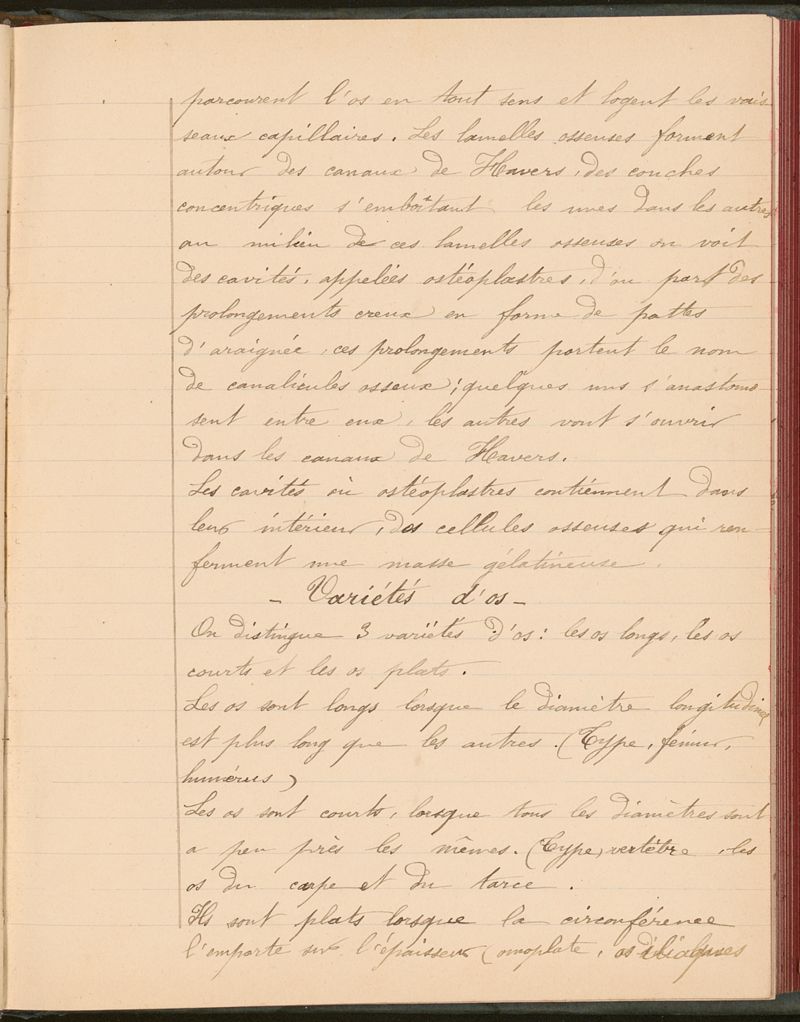 parcourent l'os en tout sens et logent les vais
seaux capillaires. Les lamelles osseuses forment
autour des canaux de Havers, des couches
concentriques s'emboîtant les unes dans les autres
au milieu de ces lamelles osseuses on voit
des cavités, appelées ostéoplastres, d'ou part des
prolongements creux en forme de pattes
d'araignée, ces prolongements portent le nom
de canalicules osseux; quelques uns s'anastomo
sent entre eux, les autres vont s'ouvrir
dans les canaux de Havers.
Les cavités où ostéoplastres contiénnent dans
leur intérieur, des cellules osseuses qui ren-
ferment une masse gélatineuse.
- Variétés d'os -
On distingue 3 variétés d'os: les os longs, les os
courts et les os plats.
Les os sont longs lorsque le diamètre longitudinal
est plus long que les autres. (Type, fémur,
humérus)
Les os sont courts, lorsque tous les diamètres sont
a peu près les mêmes. (Type, vertèbre, les
os du carpe et du tarce.
Ils sont plats lorsque la circonférence
l'emporte sur l'épaisseur (omoplate, os iliaques